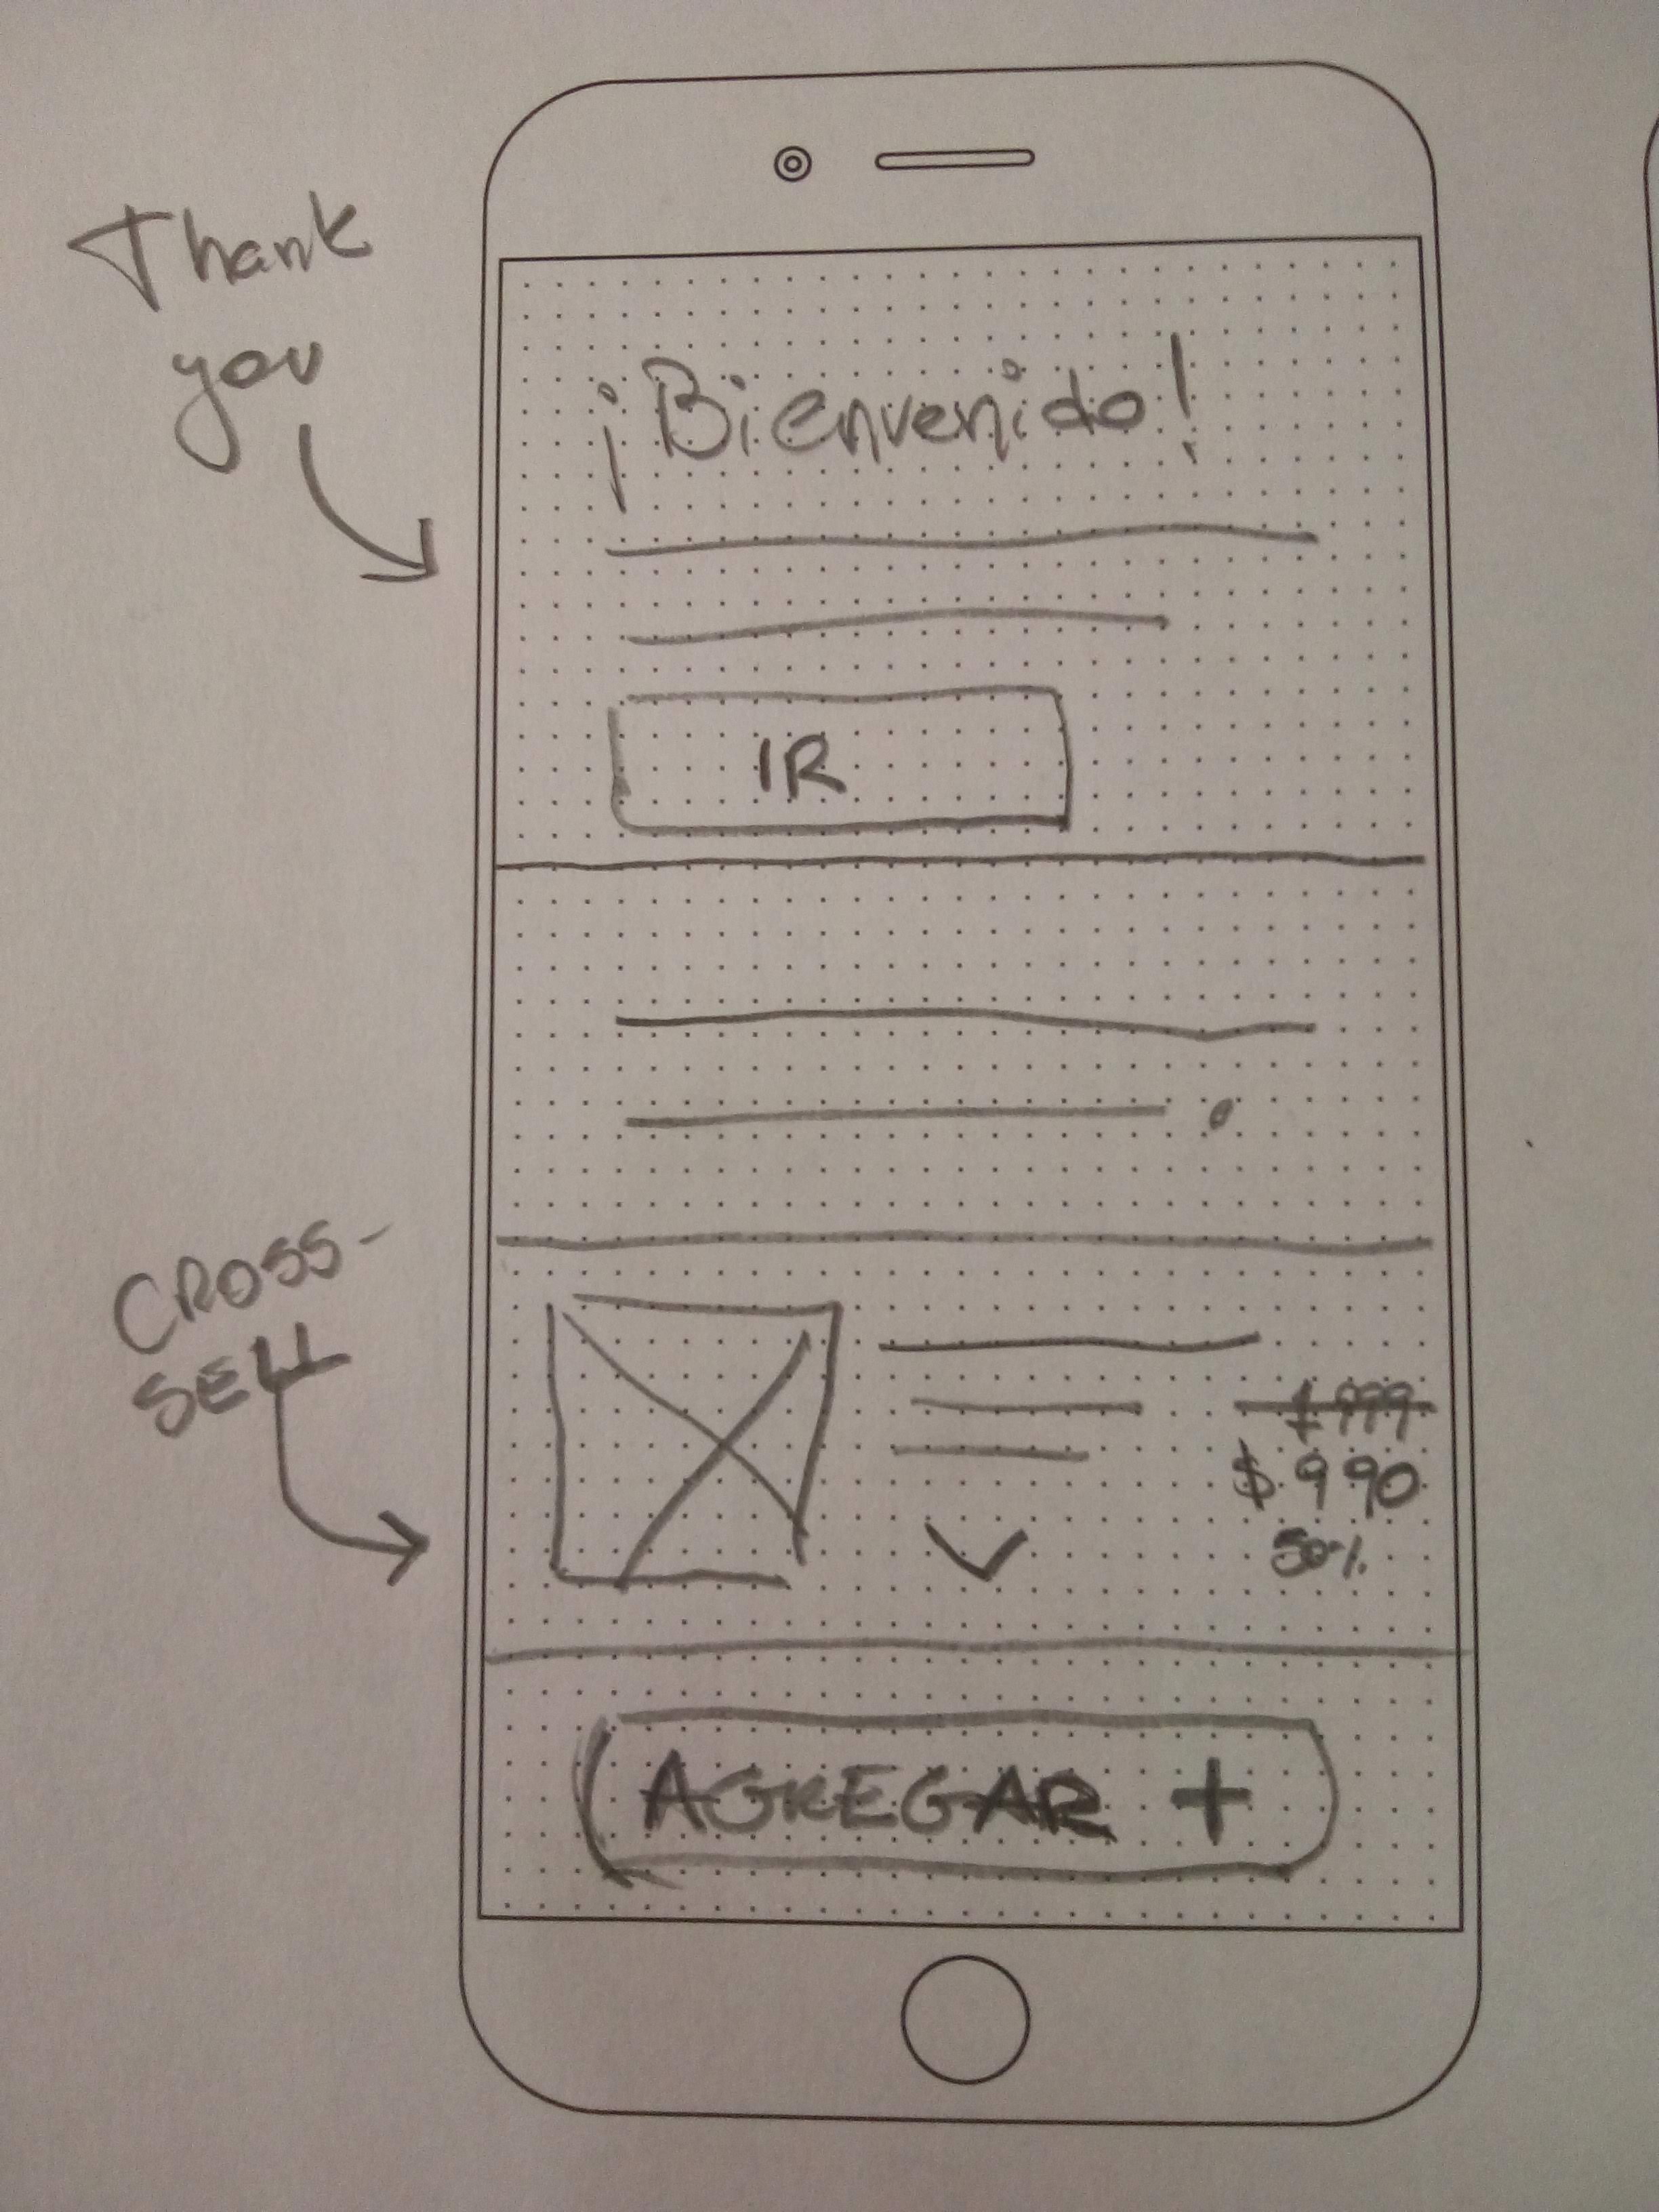 Thank
you
¡Bienvenido!
IR
CROSS-
SELL
$999
$990
50%
AGREGAR +